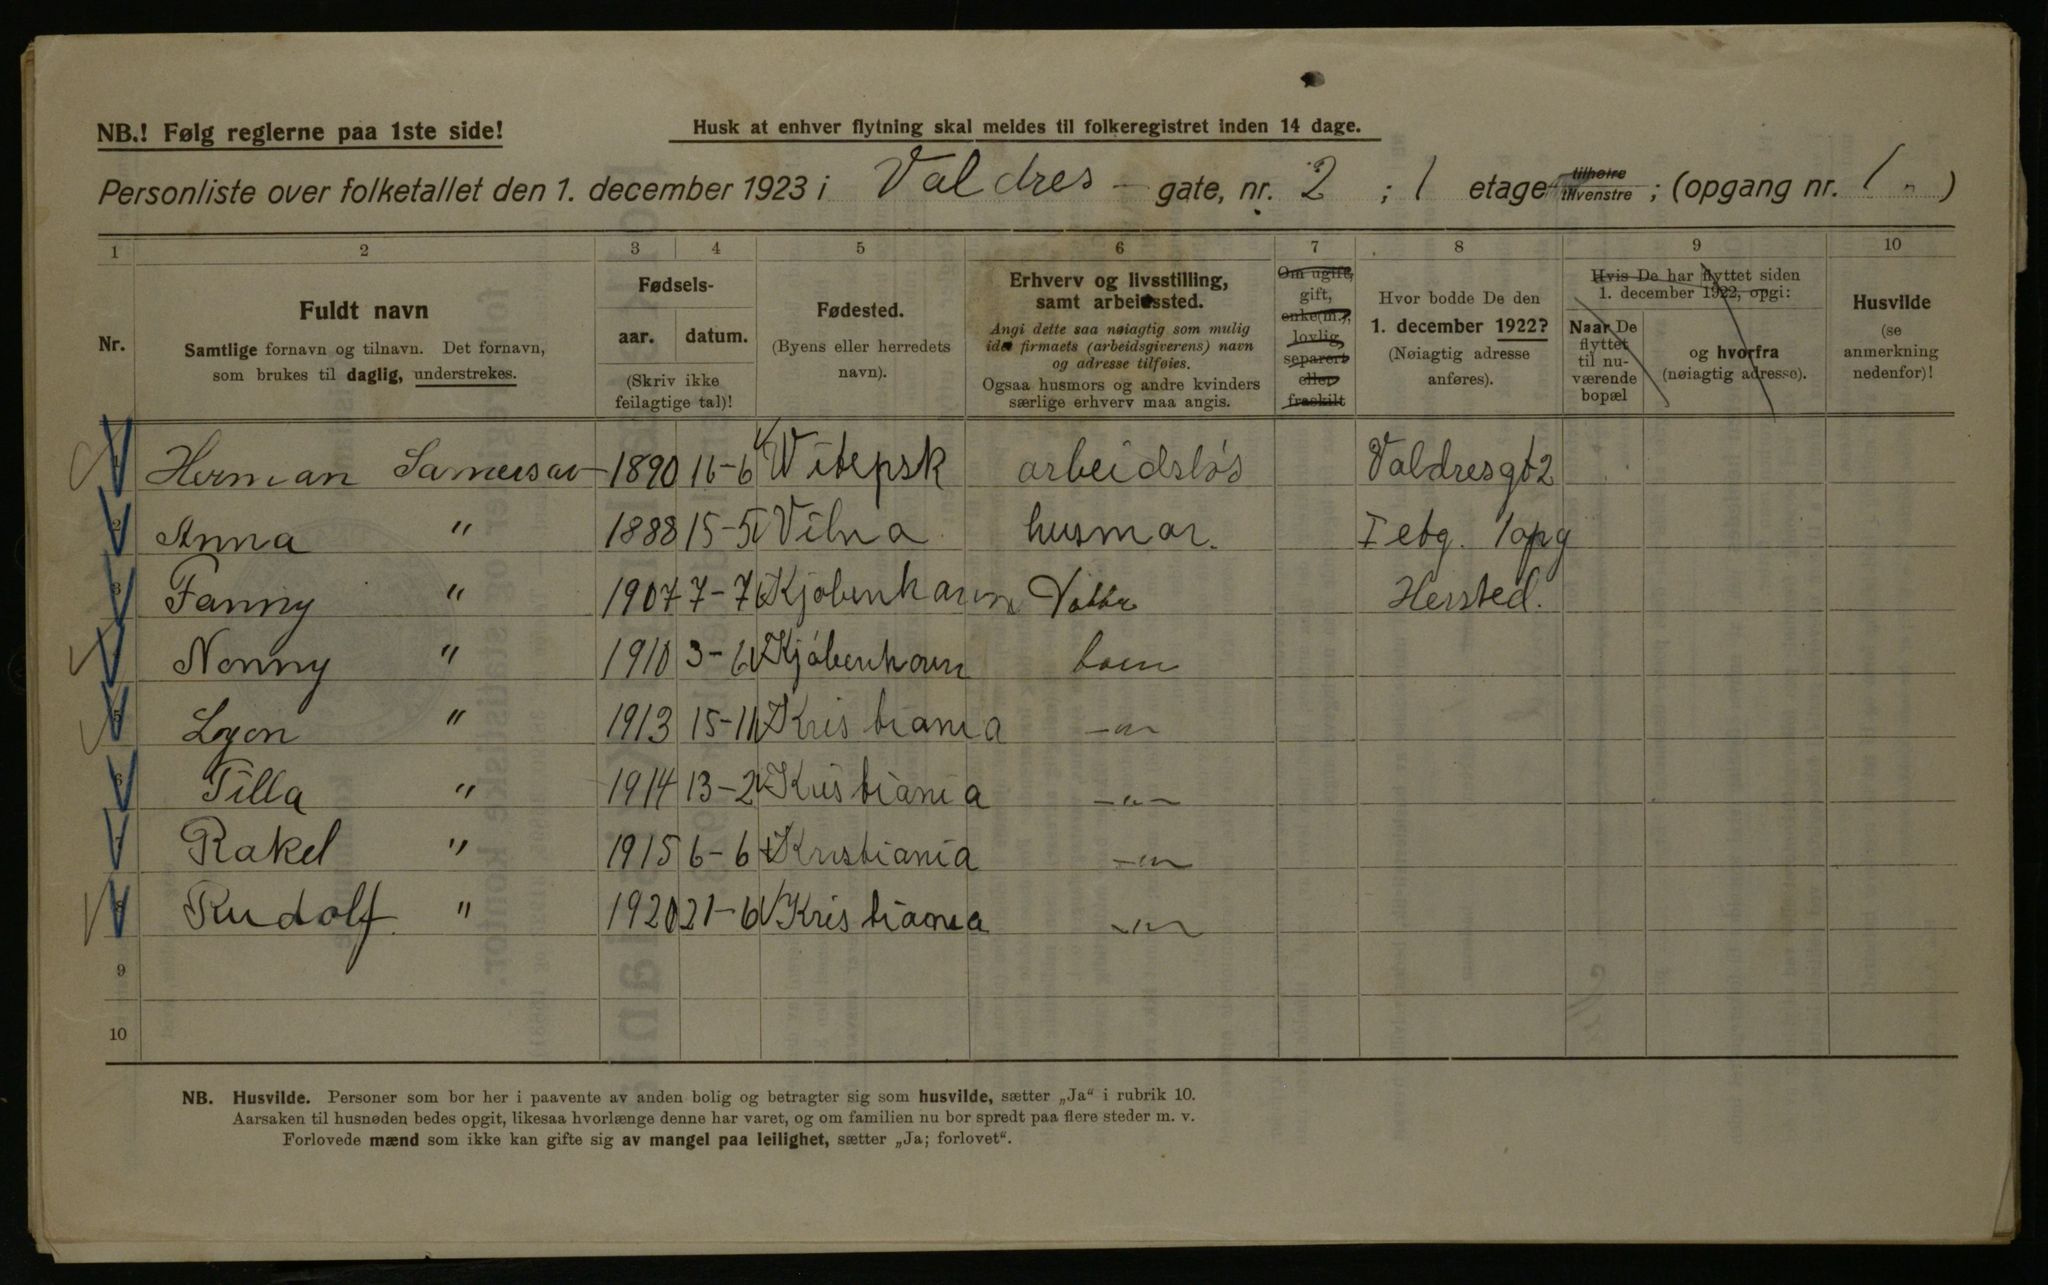 NB.! Følg reglerne paa 1ste side!
Husk at enhver flytning skal meldes til folkeregistret inden 14 dage.
Personliste over folketallet den 1. december 1923 i Valdres - gate, nr. 2 ; 1 etage tilhøire tilvenstre ; (opgang nr. 1. )
1 2 3 4 5 6 7 8 9 10
Nr.
Fuldt navn
Samtlige fornavn og tilnavn. Det fornavn,
som brukes til daglig, understrekes.
Fødsels-
aar. datum.
(Skriv ikke
feilagtige tal)!
Fødested.
(Byens eller herredets
navn).
Erhverv og livsstilling,
samt arbeidssted.
Angi dette saa nøiagtig som mulig
idet firmaets (arbeidsgiverens) navn
og adresse tilføies.
Ogsaa husmors og andre kvinders
særlige erhverv maa angis.
Om ugift,
gift,
enke(m.),
lovlig
separert
eller
fraskilt
Hvor bodde De den
1. december 1922?
(Nøiagtig adresse
anføres).
Hvis De har flyttet siden
1. december 1922, opgi:
Naar De
flyttet
til nu-
værende
bopæl
og hvorfra
(nøiagtig adresse).
Husvilde
(se
anmerkning
nedenfor)!
1 Herman 1890 16-6 Witepsk arbeidsløs Valdresgt 2
2 Anna " 1888 15-5 Vilna husmor. I etg. 1 opg
3 Fanny " 1907 7-7 Kjøbenhavn Hersted.
4 Nonny " 1910 3-6 Kjøbenhavn barn
5 Leon " 1913 15-11 Kristiania -"-
6 Tilla " 1914 13-2 Kristiania -"-
7 Rakel " 1915 6-6 Kristiania -"-
8 Rudolf " 1920 21-6 Kristiania -"-
9
10
NB. Husvilde. Personer som bor her i paavente av anden bolig og betragter sig som husvilde, sætter „Ja“ i rubrik 10.
Aarsaken til husnøden bedes opgit, likesaa hvorlænge denne har varet, og om familien nu bor spredt paa flere steder m. v.
Forlovede mænd som ikke kan gifte sig av mangel paa leilighet, sætter „Ja; forlovet“.